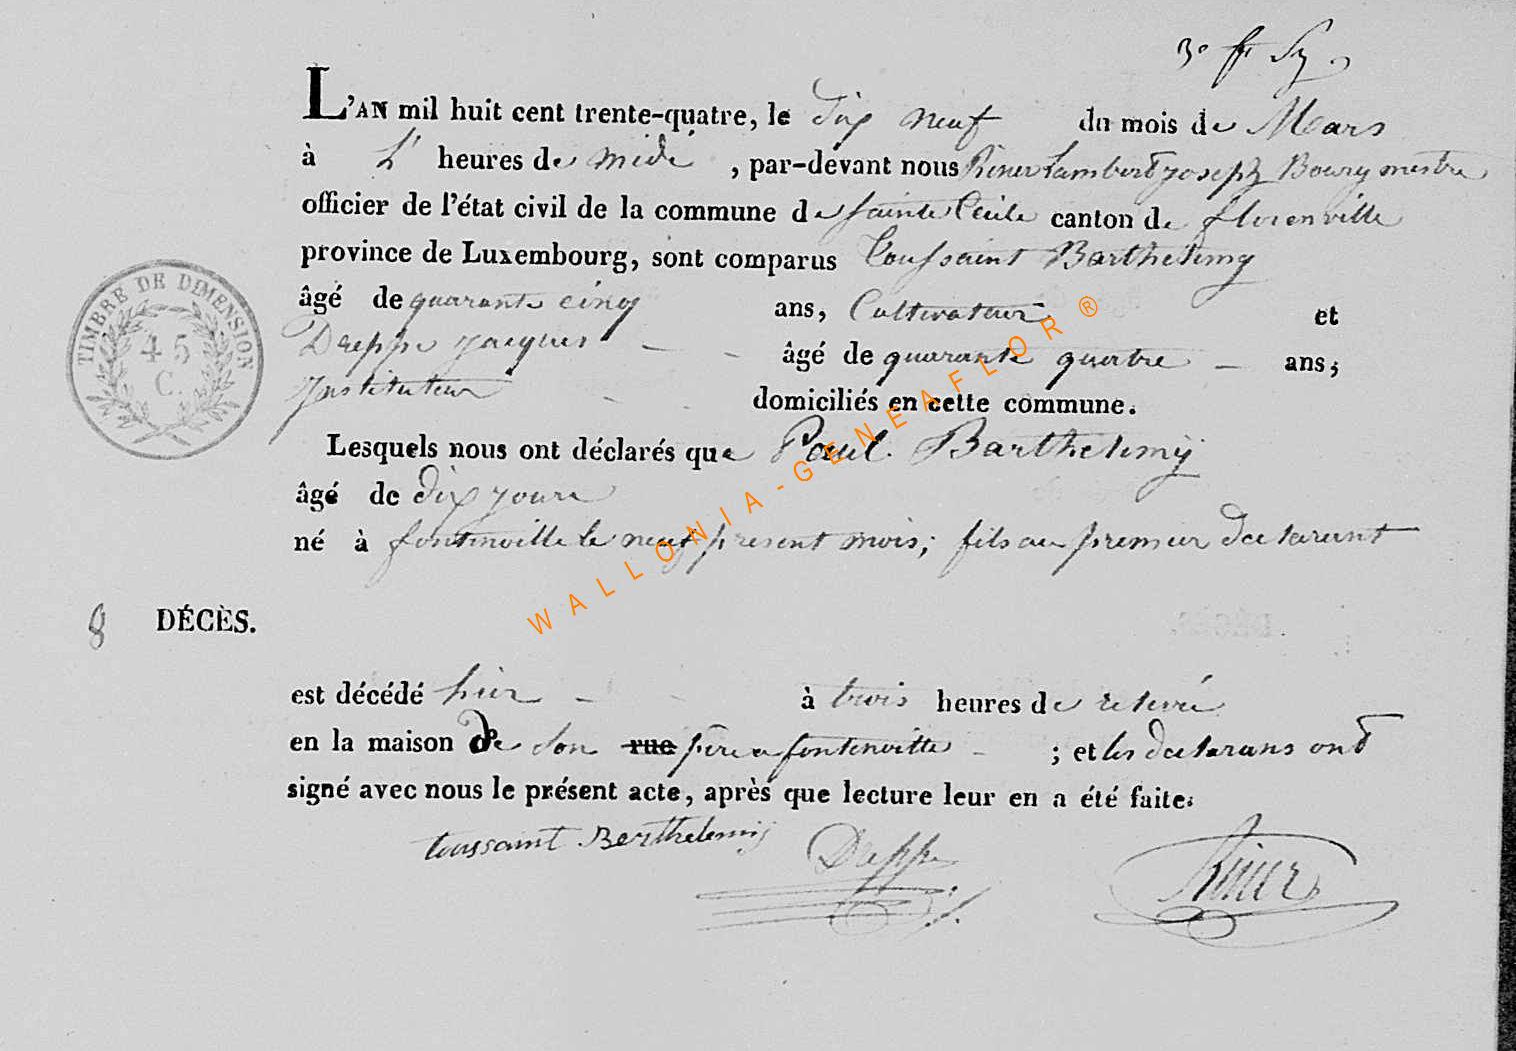 3e ff Sy.
L'AN mil huit cent trente-quatre, le dix neuf du mois de Mars
à heures de midi, par-devant nous Riner Lambert Joseph Bourgmestre
officier de l'état civil de la commune de Sainte Cécile canton de florenville
province de Luxembourg, sont comparus Toussaint Barthelemy
âgé de quarante cinq ans, Cultivateur et
Dreppe Jacques âgé de quarante quatre ans;
Instituteur domiciliés en cette commune.
Lesquels nous ont déclarés que Paul Barthelemÿ
âgé de dix jours
né à fontenoille le neuf present mois; fils au premier declarant
8 DÉCÈS.
est décédé hier à trois heures de relevé
en la maison de son rue père a fontenoille ; et les declarans ont
signé avec nous le présent acte, après que lecture leur en a été faite.
toussaint Berthelemij Dreppe Riner
TIMBRE DE DIMENSION
45
C.
WALLONIA-GENEAFLOR®